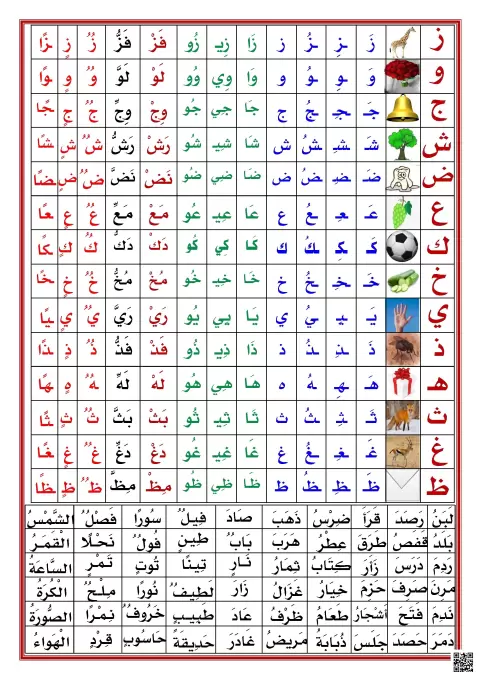 ز زَ ـزِ ـزُ ز زَا زِيـ زُو فَزْ فَزُّ زٌ زٍ ـزًا
و وَ ـوِ ـوُ و وَا وِي وُو لَوْ لَوَّ وٌ وٍ ـوًا
ج جَـ ـجِـ ـجُ ج جَا جِي جُو وِجْ وِجِّ جٌ جٍ ـجًا
ش شَـ ـشِـ ـشُ ش شَا شِيـ شُو رَشْ رَشُّ شٌ شٍ ـشًا
ض ضَـ ـضِـ ـضُ ض ضَا ضِي ضُو نَضْ نَضَّ ضٌ ضٍ ـضًا
ع عَـ ـعِـ ـعُ ع عَا عِيـ عُو مَعْ مَعِّ عٌ عٍ ـعًا
ك كَـ ـكِـ ـكُ ك كَا كِي كُو دَكْ دَكُّ كٌ كٍ ـكًا
خ خَـ ـخِـ ـخُ خ خَا خِيـ خُو مُخْ مُخُّ خٌ خٍ ـخًا
ي يَـ ـيِـ ـيُ ي يَا يِي يُو رَيْ رَيَّ يٌ يٍ ـيًا
ذ ذَ ـذِ ـذُ ذ ذَا ذِيـ ذُو فَذْ فَذُّ ذٌ ذٍ ـذًا
هـ هَـ ـهِـ ـهُ ه هَا هِي هُو لَهْ لَهِّ هٌ هٍ ـهًا
ث ثَـ ـثِـ ـثُ ث ثَا ثِيـ ثُو بَثْ بَثَّ ثٌ ثٍ ـثًا
غ غَـ ـغِـ ـغُ غ غَا غِيـ غُو دَغْ دَغٍّ غٌ غٍ ـغًا
ظ ظَـ ـظِـ ـظُ ظ ظَا ظِي ظُو مِظْ مِظَّ ظٌ ظٍ ـظًا
لَبَنُ رصَدَ قرَأَ ضِرْسُ ذَهَبَ صَادَ فِيلٌ سُورًا فَصْلٌ الشَّمْسُ
بَلَدُ قفَصُ طرَقَ عِطْرُ هَرَبَ بَابٌ طِينٍ فُولٌ نَحْلًا القَمَرُ
ردِمَ دَرَسَ زَارَ كِتَابُ ثِمَارُ نَارٍ تِينًا تُوتٍ تَمْرٍ السَّاعَةُ
مَرِنَ صَرَفَ حَزِمَ خِيَارُ غَزَالُ زَارَ لَطِيفٌ نُورًا مِلْحٌ الْكُرَةُ
نَدِمَ فَتَحَ أشْجَارُ طَعَامُ ظَرْفُ عَادَ طَبِيبٍ خَرُوفٌ نِمْرًا الصُّورَةُ
دَمَرَ حَصَدَ جلَسَ ذُبَابَةُ مَرِيضُ غَادَرَ حَدِيقَةً حَاسُوبٍ قِرْدٍ الْهَوَاءُ